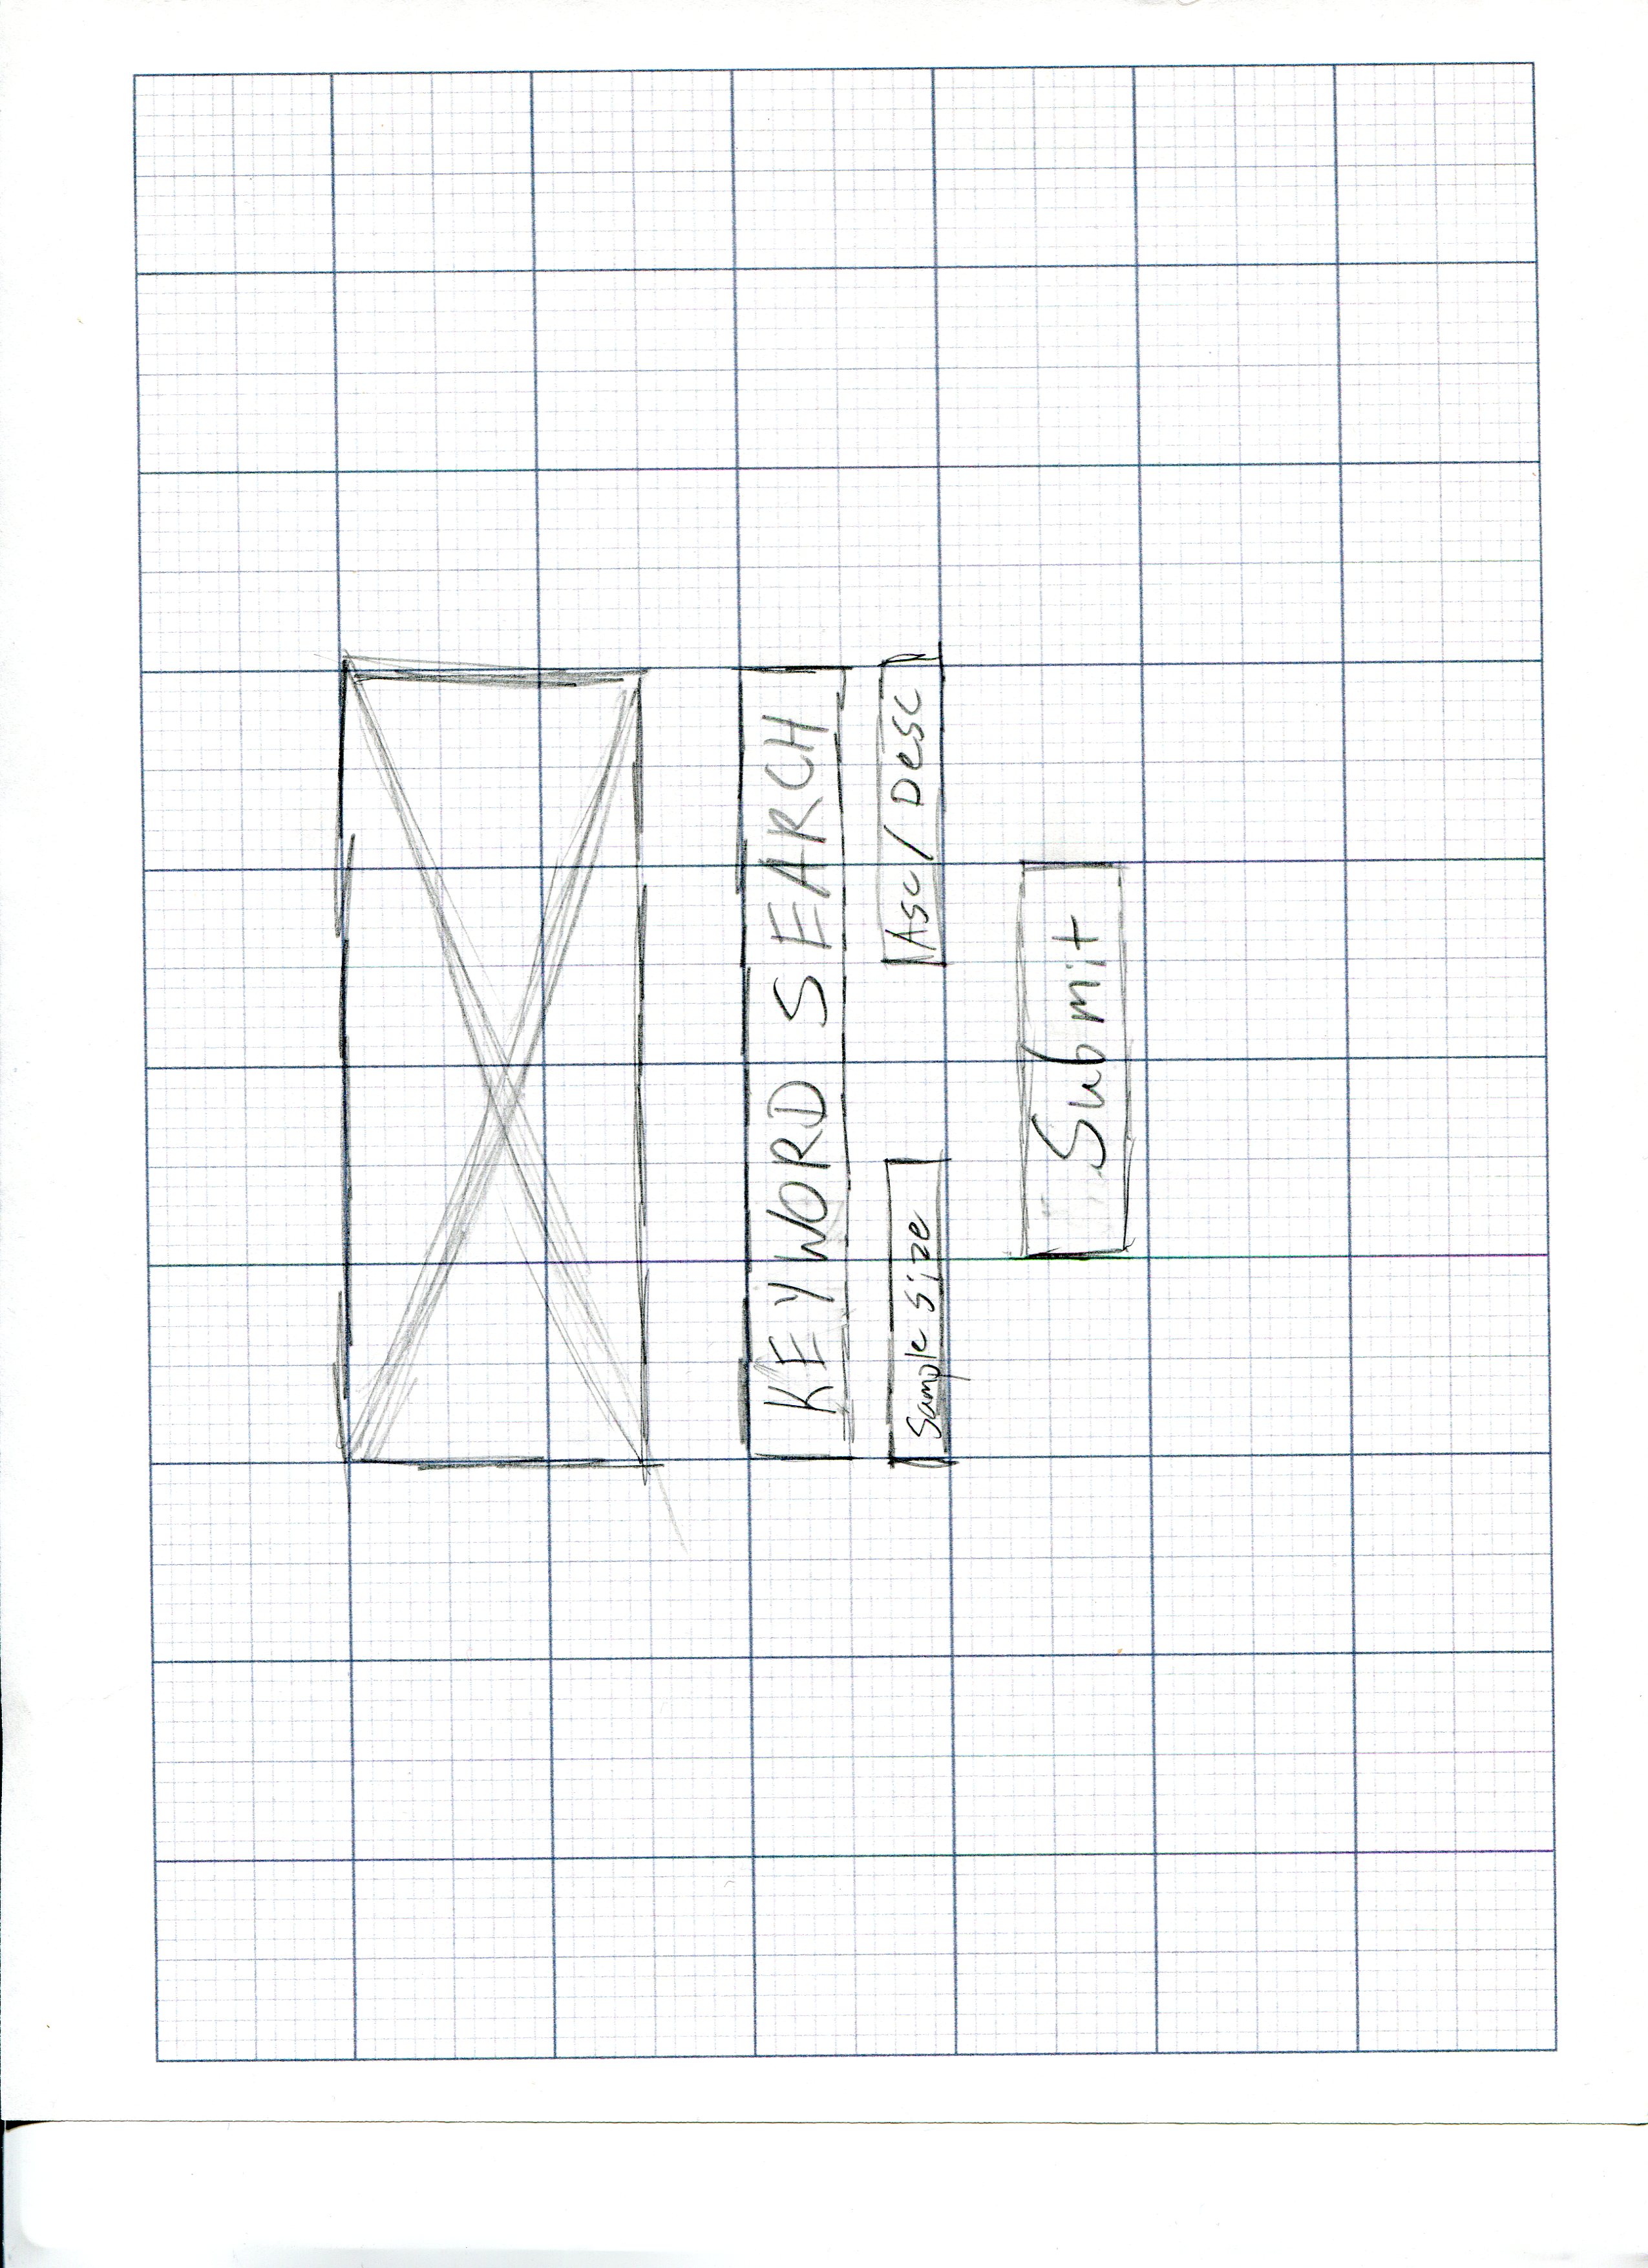 KEYWORD SEARCH
Sample Size
Asc / Desc
Submit